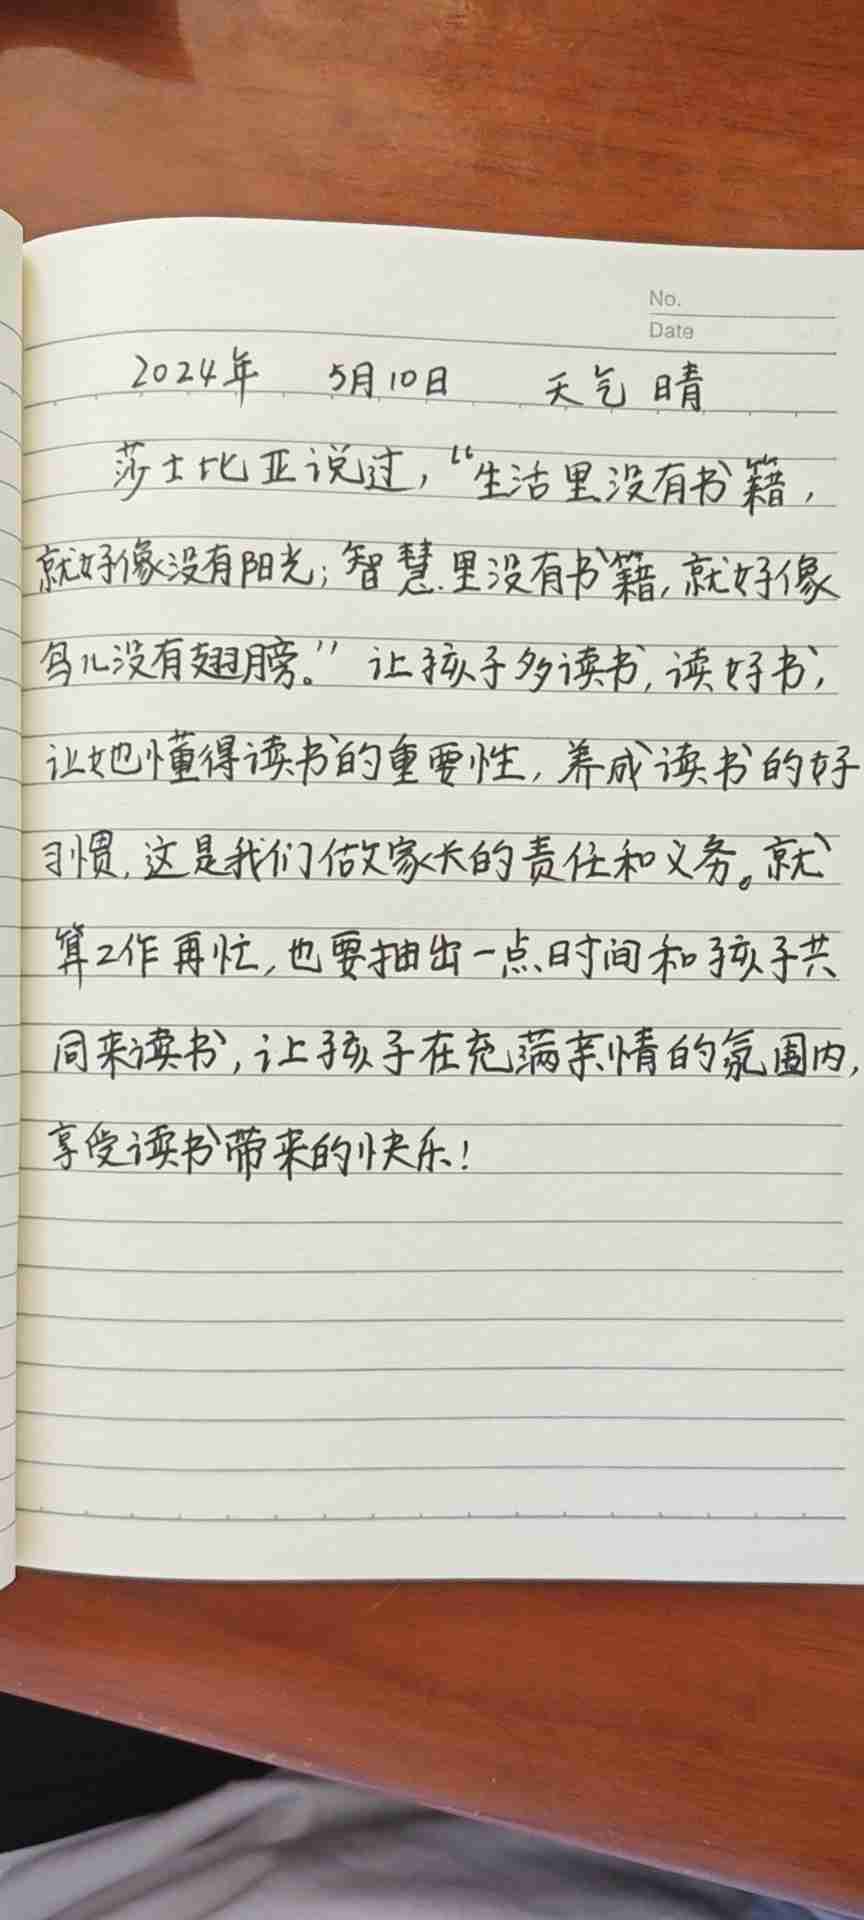 No.
Date
2024年 5月10日 天气 晴
莎士比亚说过，“生活里没有书籍，
就好像没有阳光；智慧里没有书籍，就好像
鸟儿没有翅膀。”让孩子多读书，读好书，
让她懂得读书的重要性，养成读书的好
习惯，这是我们做家长的责任和义务。就
算工作再忙，也要抽出一点时间和孩子共
同来读书，让孩子在充满亲情的氛围内，
享受读书带来的快乐！